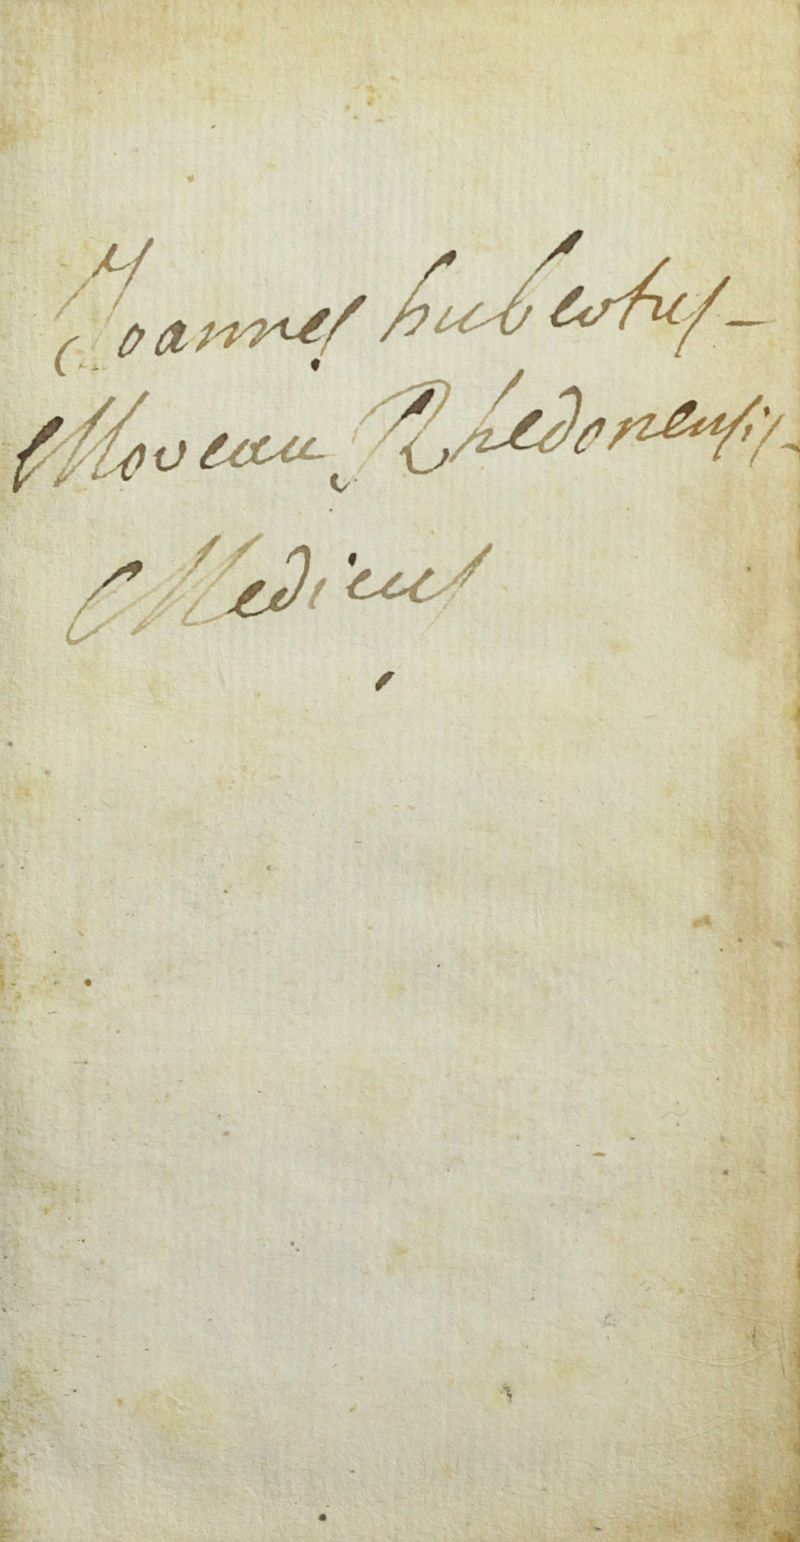 Joannes hubertus -
Moreau Rhedonensis -
Medicus